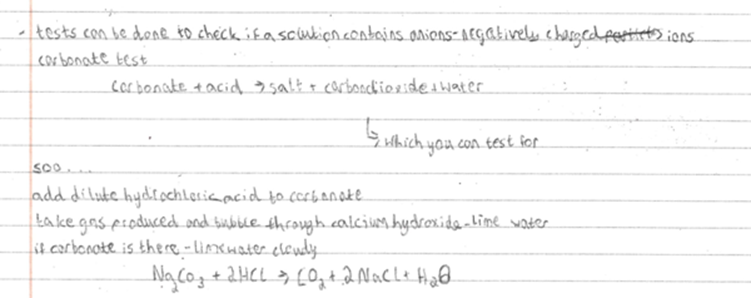 - tests can be done to check if a solution contains anions - negatively charged ions
carbonate test
carbonate + acid → salt + carbondioxide + water
↳ which you can test for
soo....
add dilute hydrochloric acid to carbonate
take gas produced and bubble through calcium hydroxide - lime water
if carbonate is there - limewater cloudy
Na₂CO₃ + 2HCl → CO₂ + 2NaCl + H₂O